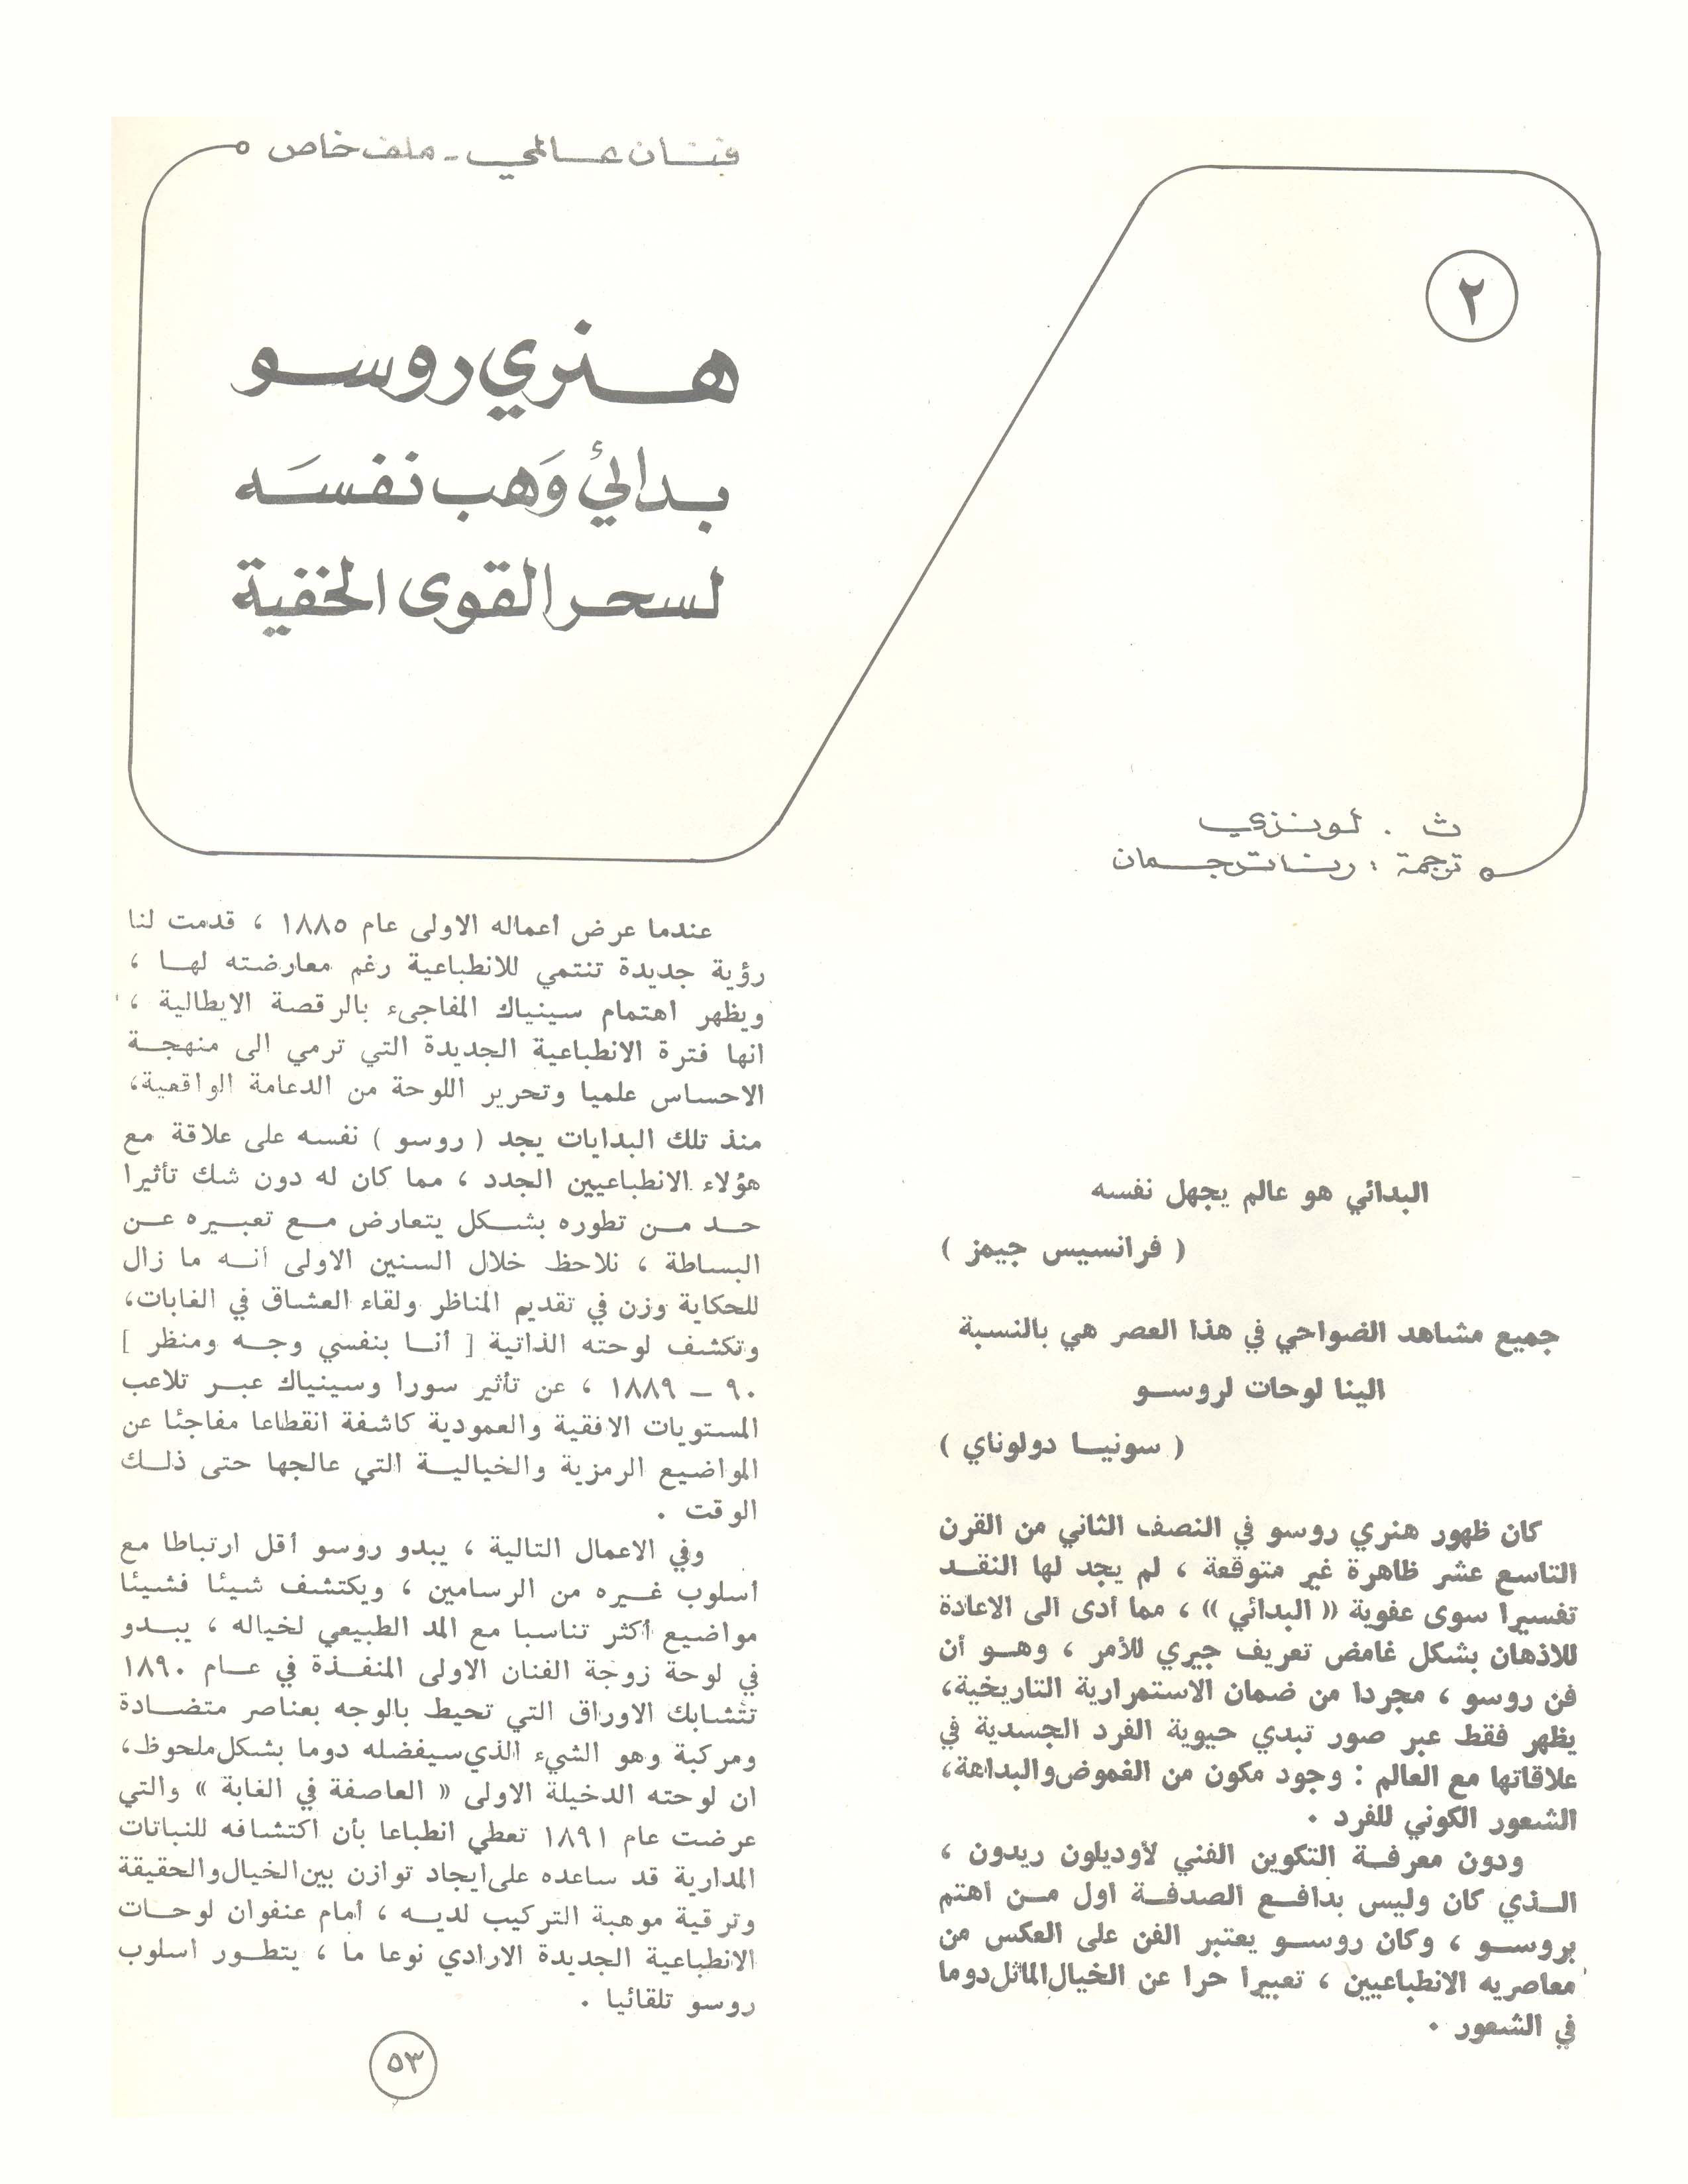 فنان عالمي - ملف خاص
٢
هنري روسو
بدائي وَهب نفسَه
لسحر القوى الخفية
ث . لونزي
ترجمة : رينات جمان
البدائي هو عالم يجهل نفسه
( فرانسيس جيمز )
جميع مشاهد الضواحي في هذا العصر هي بالنسبة
الينا لوحات لروسو
( سونيا دولوناي )
كان ظهور هنري روسو في النصف الثاني من القرن
التاسع عشر ظاهرة غير متوقعة ، لم يجد لها النقد
تفسيرا سوى عفوية « البدائي » ، مما أدى الى الاعادة
للاذهان بشكل غامض تعريف جيري للأمر ، وهو أن
فن روسو ، مجردا من ضمان الاستمرارية التاريخية،
يظهر فقط عبر صور تبدي حيوية الفرد الجسدية في
علاقاتها مع العالم : وجود مكون من الغموض والبداهة،
الشعور الكوني للفرد .
ودون معرفة التكوين الفني لأوديلون ريدون ،
الذي كان وليس بدافع الصدفة اول من اهتم
بروسو ، وكان روسو يعتبر الفن على العكس من
معاصريه الانطباعيين ، تعبيرا حرا عن الخيال الماثل دوما
في الشعور .
عندما عرض أعماله الاولى عام ١٨٨٥ ، قدمت لنا
رؤية جديدة تنتمي للانطباعية رغم معارضته لها ،
ويظهر اهتمام سينياك المفاجىء بالرقصة الايطالية ،
انها فترة الانطباعية الجديدة التي ترمي الى منهجة
الاحساس علميا وتحرير اللوحة من الدعامة الواقعية،
منذ تلك البدايات يجد ( روسو ) نفسه على علاقة مع
هؤلاء الانطباعيين الجدد ، مما كان له دون شك تأثيرا
حد من تطوره بشكل يتعارض مع تعبيره عن
البساطة ، نلاحظ خلال السنين الاولى أنه ما زال
للحكاية وزن في تقديم المناظر ولقاء العشاق في الغابات،
وتكشف لوحته الذاتية [ أنا بنفسي وجه ومنظر ]
٩٠ - ١٨٨٩ ، عن تأثير سورا وسينياك عبر تلاعب
المستويات الافقية والعمودية كاشفة انقطاعا مفاجئا عن
المواضيع الرمزية والخيالية التي عالجها حتى ذلك
الوقت .
وفي الاعمال التالية ، يبدو روسو أقل ارتباطا مع
أسلوب غيره من الرسامين ، ويكتشف شيئا فشيئا
مواضيع أكثر تناسبا مع المد الطبيعي لخياله ، يبدو
في لوحة زوجة الفنان الاولى المنفذة في عام ١٨٩٠
تتشابك الاوراق التي تحيط بالوجه بعناصر متضادة
ومركبة وهو الشيء الذي سيفضله دوما بشكل ملحوظ،
ان لوحته الدخيلة الاولى « العاصفة في الغابة » والتي
عرضت عام ١٨٩١ تعطي انطباعا بأن اكتشافه للنباتات
المدارية قد ساعده على ايجاد توازن بين الخيال والحقيقة
وترقية موهبة التركيب لديه ، أمام عنفوان لوحات
الانطباعية الجديدة الارادي نوعا ما ، يتطور اسلوب
روسو تلقائيا .
٥٣